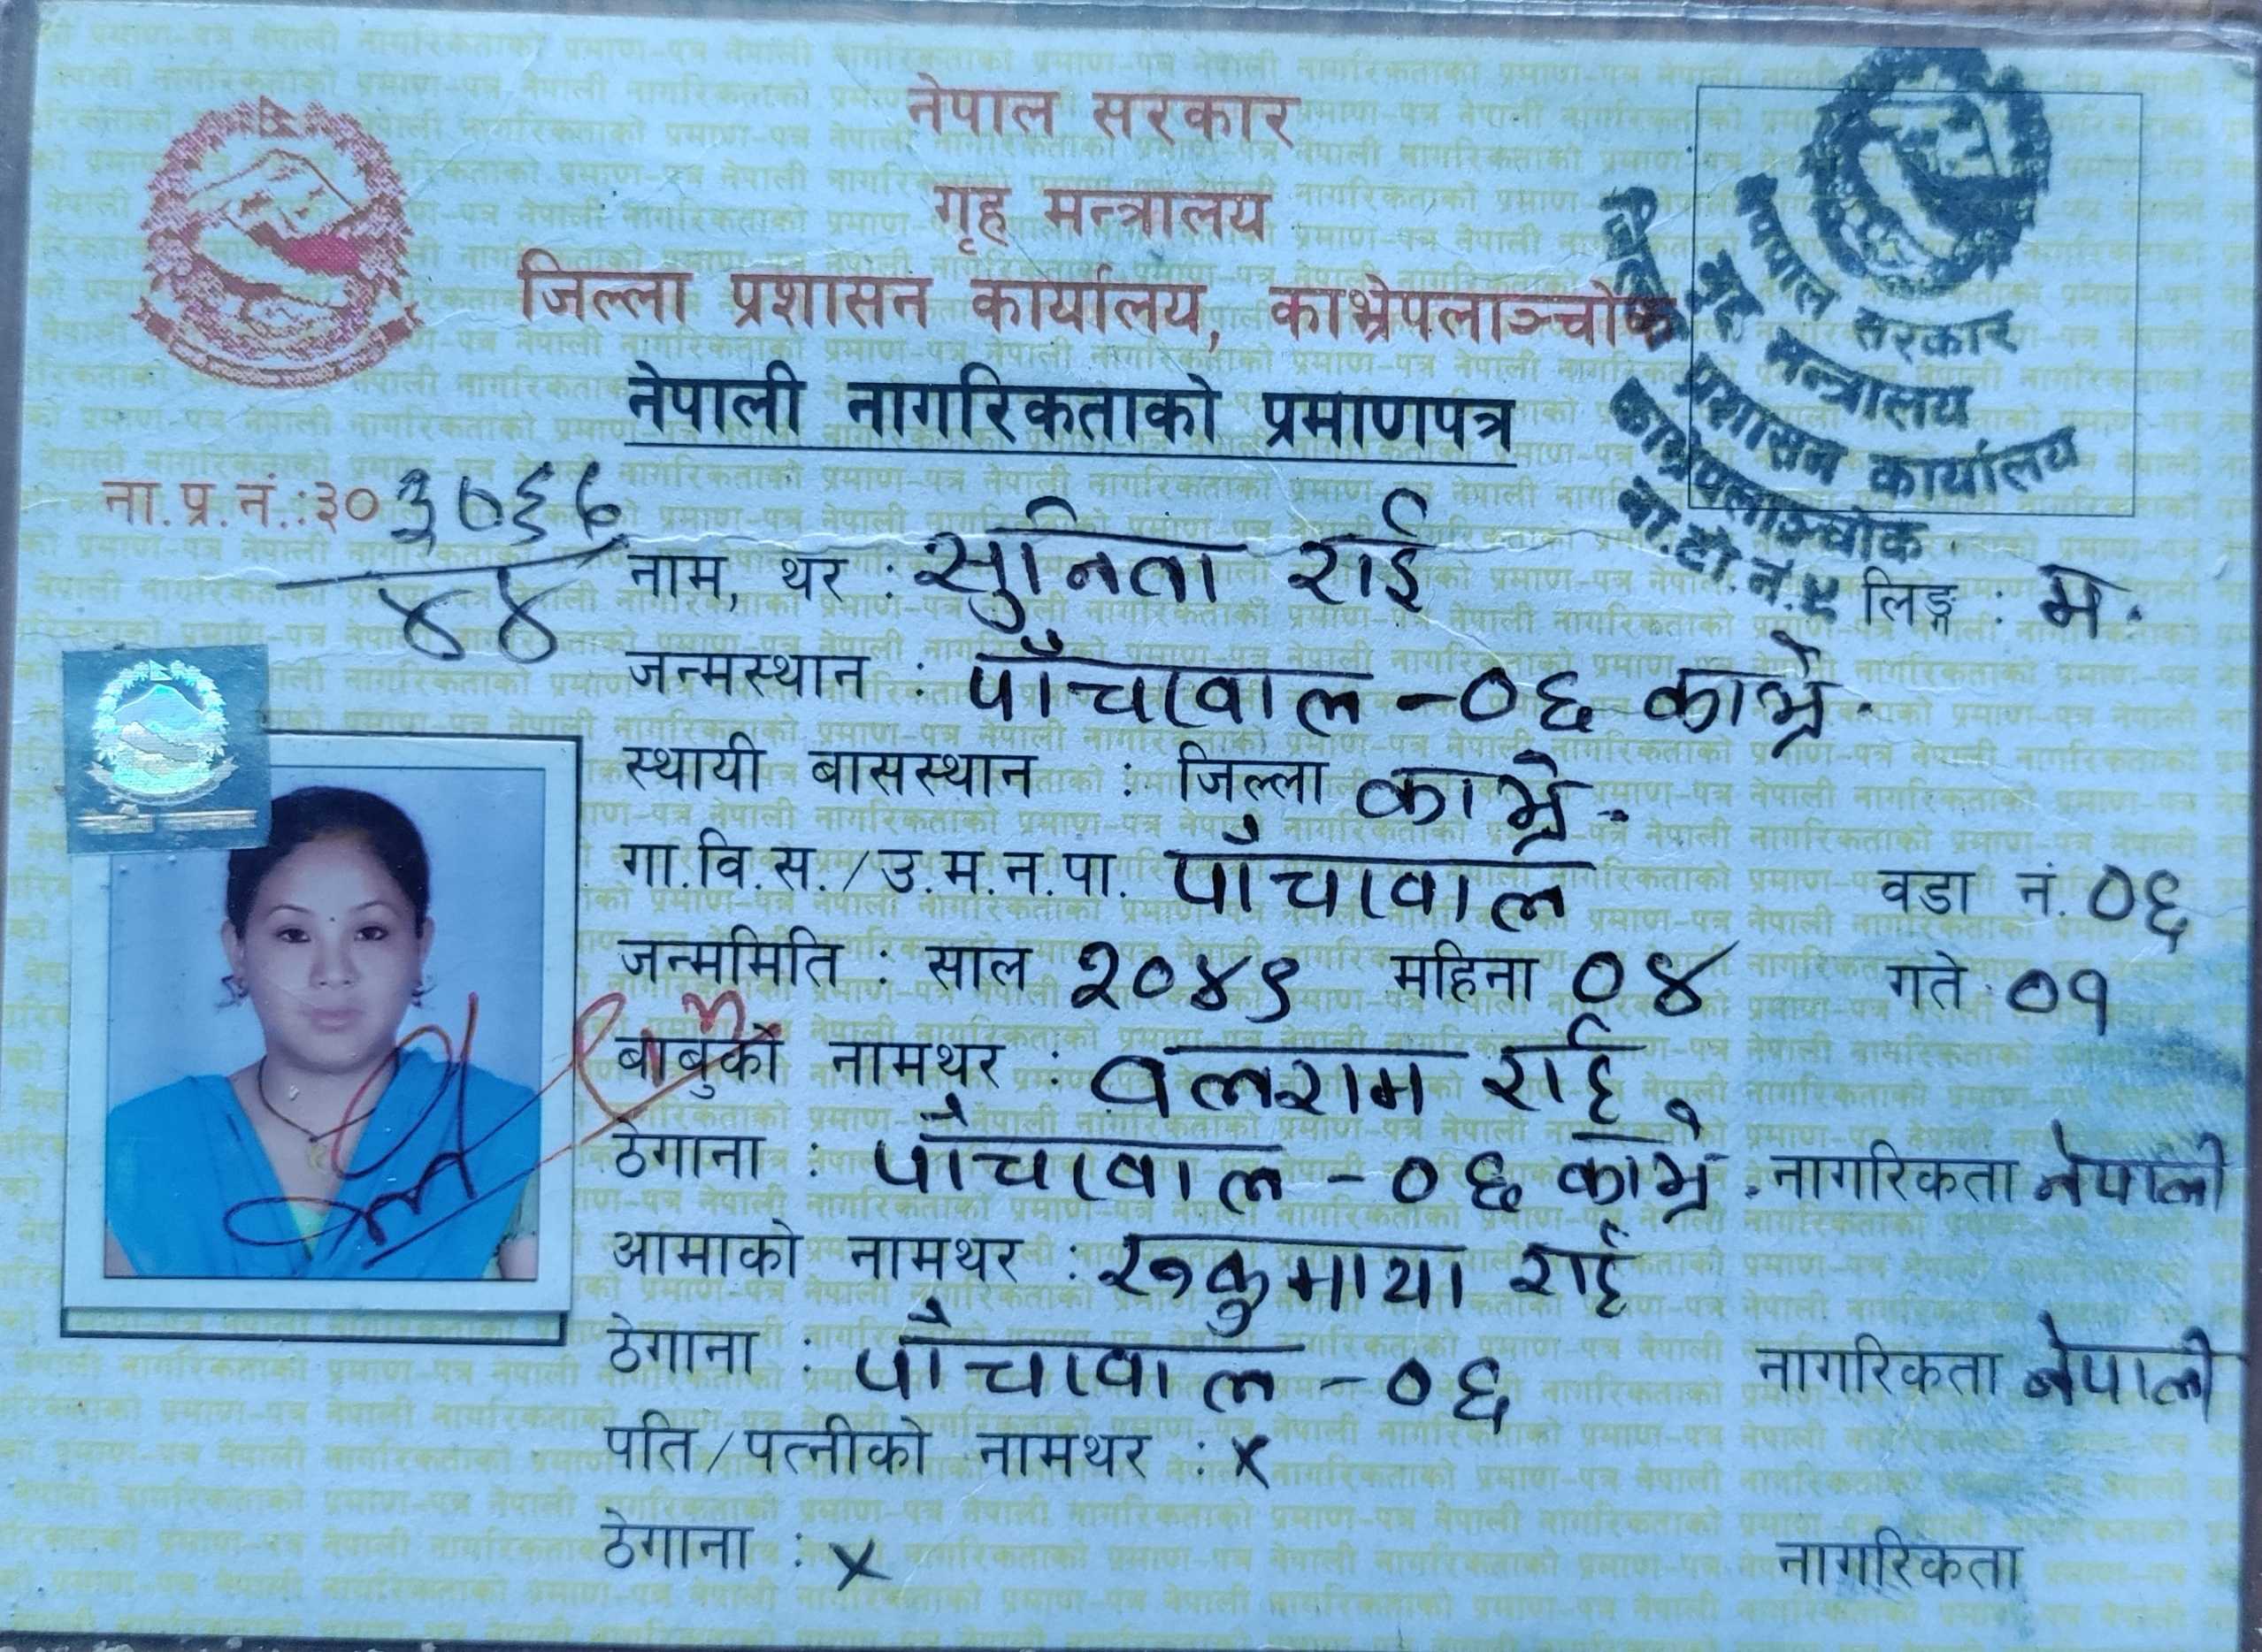 नेपाल सरकार
गृह मन्त्रालय
जिल्ला प्रशासन कार्यालय, काभ्रेपलाञ्चोक
नेपाली नागरिकताको प्रमाणपत्र
नेपाल सरकार
गृह मन्त्रालय
प्रशासन कार्यालय
काभ्रेपलाञ्चोक
ना.प्र.नं.:३०
४४
नाम, थर : सुनिता राई लिङ्ग : म.
जन्मस्थान : पाँचखाल -०६ काभ्रे.
स्थायी बासस्थान : जिल्ला काभ्रे.
गा.वि.स./उ.म.न.पा. पाँचखाल वडा नं. ०६
जन्ममिति : साल २०४९ महिना ०४ गते ०१
बाबुको नामथर : वलराम राई
ठेगाना : पाँचखाल -०६ काभ्रे. नागरिकता नेपाली
आमाको नामथर : रुकुमाया राई
ठेगाना : पाँचखाल -०६ नागरिकता नेपाली
पति/पत्नीको नामथर : x
ठेगाना : x नागरिकता